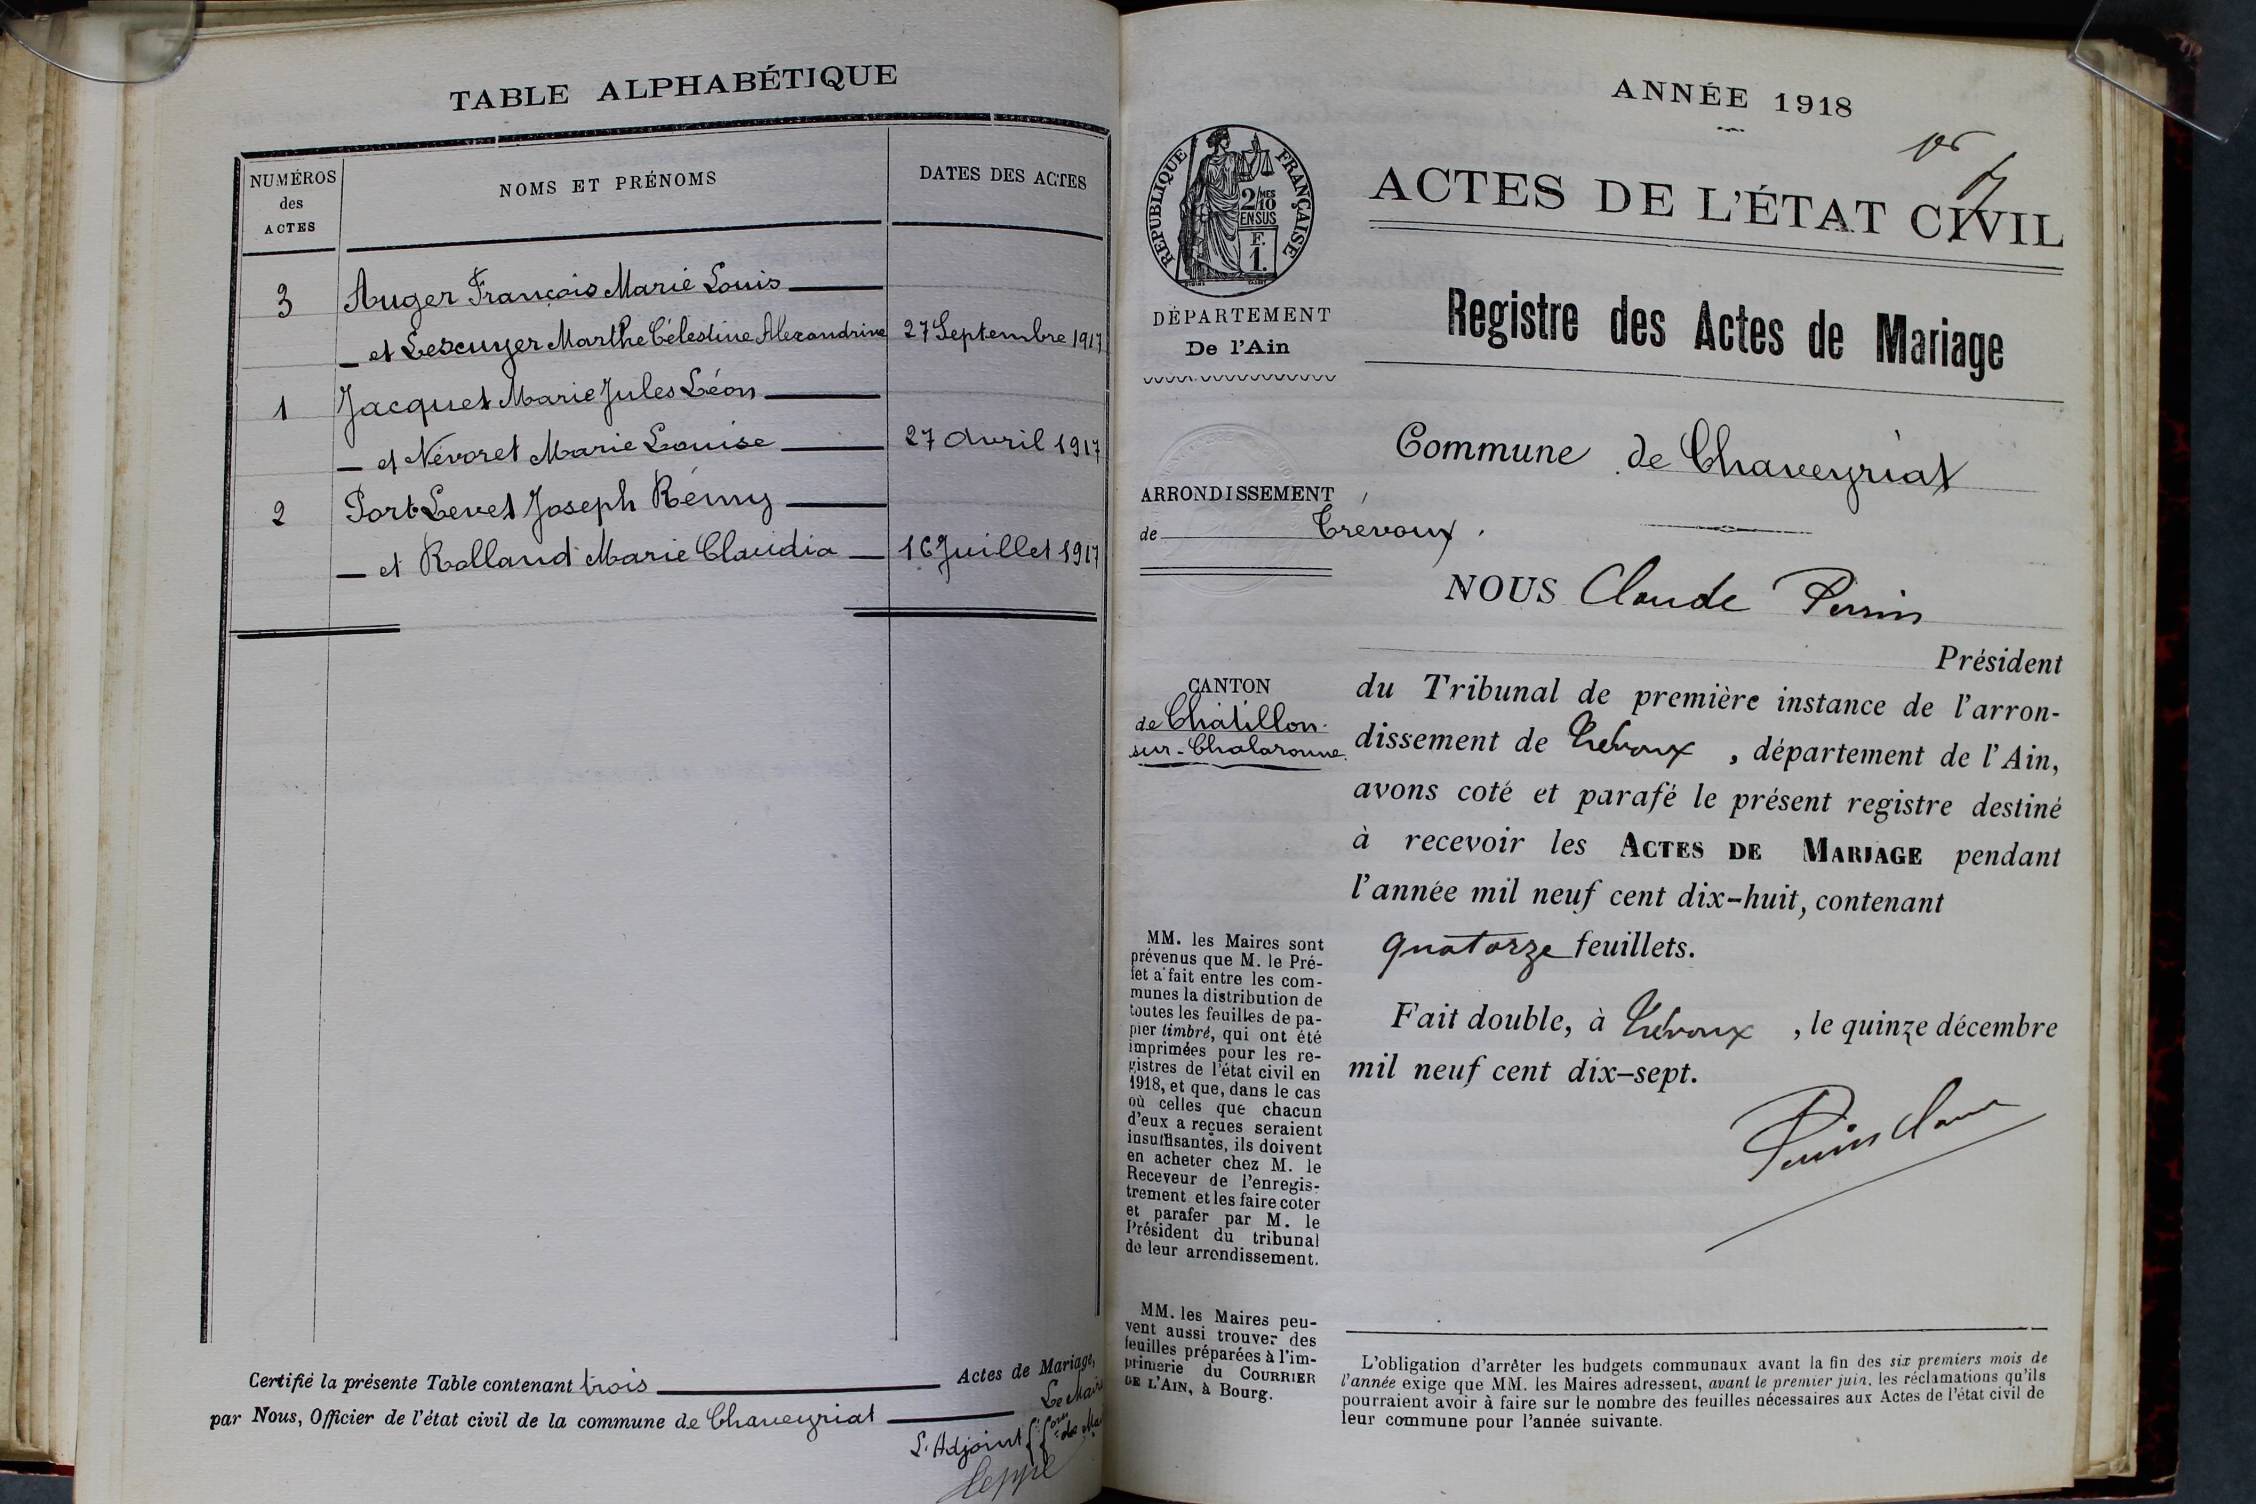 TABLE ALPHABÉTIQUE
NUMÉROS
des
ACTES
NOMS ET PRÉNOMS
DATES DES ACTES
3 Auger François Marie Louis
et Lescuyer Marthe Célestine Alexandrine 27 Septembre 1917
1 Jacquet Marie Jules Léon
et Névoret Marie Louise 27 Avril 1917
2 Port-Levet Joseph Rémy
et Rolland Marie Claudia 16 Juillet 1917
Certifié la présente Table contenant trois Actes de Mariage,
par Nous, Officier de l'état civil de la commune de Chaveyriat Le Maire
L'Adjoint
ANNÉE 1918
ACTES DE L'ÉTAT CIVIL
RÉPUBLIQUE FRANÇAISE
2/10
MES
EN SUS
F.
1.
DÉPARTEMENT
De l'Ain
Registre des Actes de Mariage
Commune de Chaveyriat
ARRONDISSEMENT
de Trévoux.
NOUS Claude Perrin
Président
CANTON
de Châtillon-
sur-Chalaronne.
du Tribunal de première instance de l'arron-
dissement de Trévoux, département de l'Ain,
avons coté et parafé le présent registre destiné
à recevoir les ACTES DE MARIAGE pendant
l'année mil neuf cent dix-huit, contenant
quatorze feuillets.
Fait double, à Trévoux, le quinze décembre
mil neuf cent dix-sept.
MM. les Maires sont
prévenus que M. le Pré-
fet a fait entre les com-
munes la distribution de
toutes les feuilles de pa-
pier timbré, qui ont été
imprimées pour les re-
gistres de l'état civil en
1918, et que, dans le cas
où celles que chacun
d'eux a reçues seraient
insuffisantes, ils doivent
en acheter chez M. le
Receveur de l'enregis-
trement et les faire coter
et parafer par M. le
Président du tribunal
de leur arrondissement.
MM. les Maires peu-
vent aussi trouver des
feuilles préparées à l'im-
primerie du COURRIER
DE L'AIN, à Bourg.
L'obligation d'arrêter les budgets communaux avant la fin des six premiers mois de
l'année exige que MM. les Maires adressent, avant le premier juin, les réclamations qu'ils
pourraient avoir à faire sur le nombre des feuilles nécessaires aux Actes de l'état civil de
leur commune pour l'année suivante.